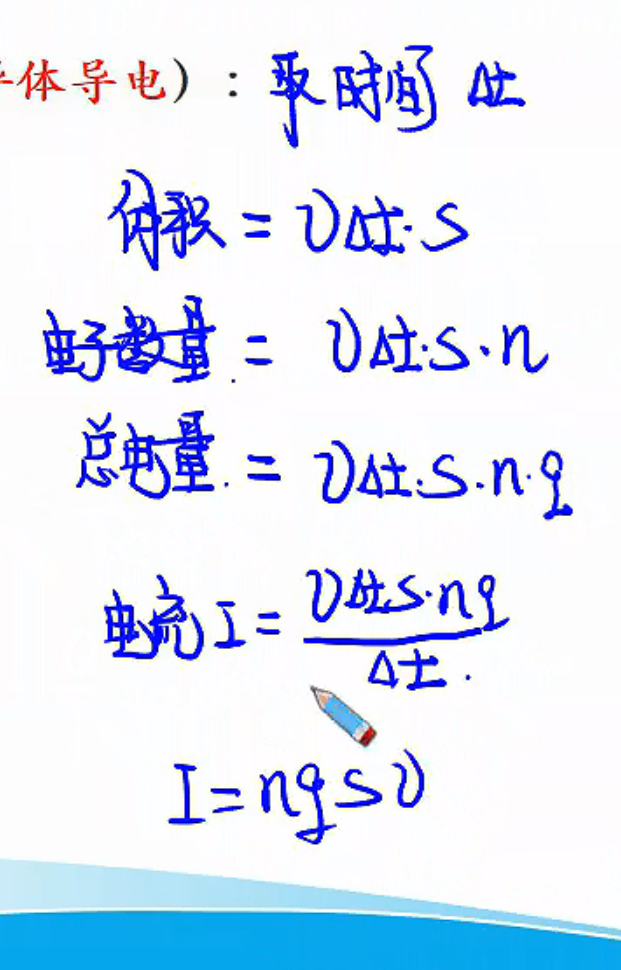 体导电）：取时间 Δt
体积 = vΔt·s
电子数量 = vΔt·s·n
总电量 = vΔt·s·n·q
电流 I = vΔts·nq / Δt
I = nqsv